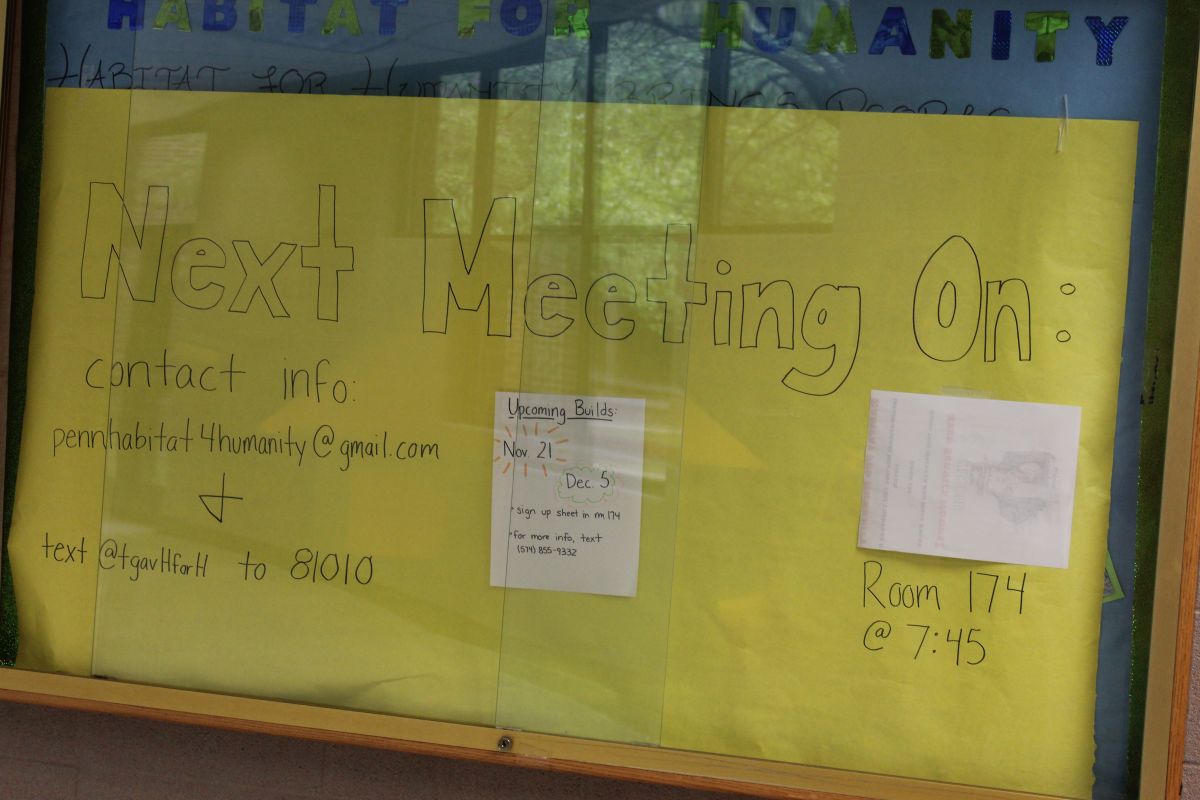 HABITAT FOR HUMANITY
HABITAT FOR HUMANITY BRINGS PEOPLE
Next Meeting On:
contact info:
pennhabitat4humanity@gmail.com
text @tgavHforH to 81010
Upcoming Builds:
Nov. 21
Dec. 5
* sign up sheet in rm 174
* for more info, text
(574) 855-9332
Room 174
@ 7:45